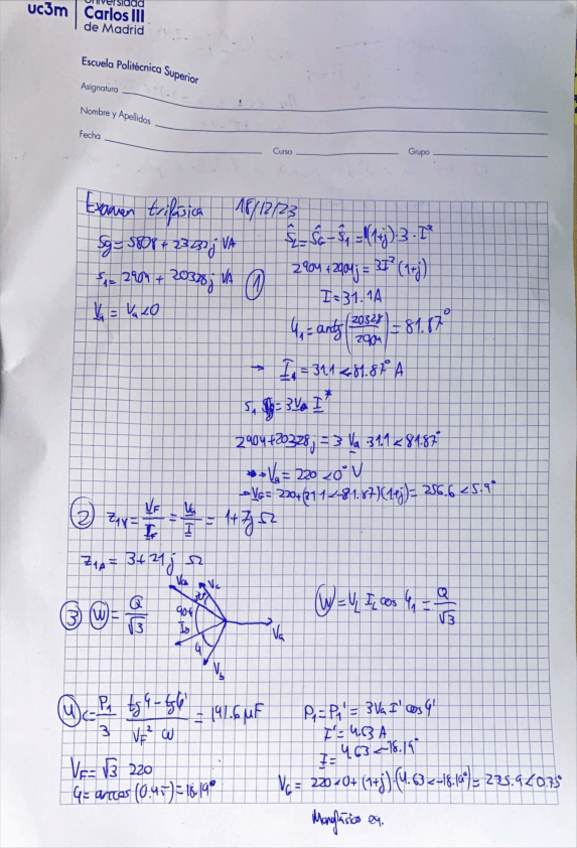 uc3m Universidad
Carlos III
de Madrid
Escuela Politécnica Superior
Asignatura
Nombre y Apellidos
Fecha Curso Grupo
Examen trifásica 18/12/23
Sg = 5808 + 23232j VA
S₁ = 2904 + 20328j VA
Va = Va∠0
①
Ŝz = Ŝg - Ŝ₁ = (1+j)·3·I²
2904+2904j = 3I²(1+j)
I = 31.1A
φ₁ = arctg(20328/2904) = 81.87°
→ I₁ = 31.1∠81.87° A
S₁ = 3Va I*
2904+20328j = 3 Va 31.1∠81.87°
→ Va = 220∠0° V
→ VG = 220+(31.1∠-81.87)(1+j) = 256.6∠5.9°
② Z1Y = VF/IF = Va/I = 1+7j Ω
Z1Δ = 3+21j Ω
③ W = Q/√3
Va Vc
90
Va
φ
Vb
W = VL IL cos φ₁ = Q/√3
④ C = P₁/3 (tgφ - tgφ')/(VF² ω) = 141.6 μF
VF = √3 220
φ = arccos(0.95) = 18.19°
P₁ = P₁' = 3Va I' cos φ'
I' = 4.63 A
I = 4.63∠-18.19°
VG = 220∠0 + (1+j)·(4.63∠-18.19°) = 225.9∠0.75
Monofásico eq.